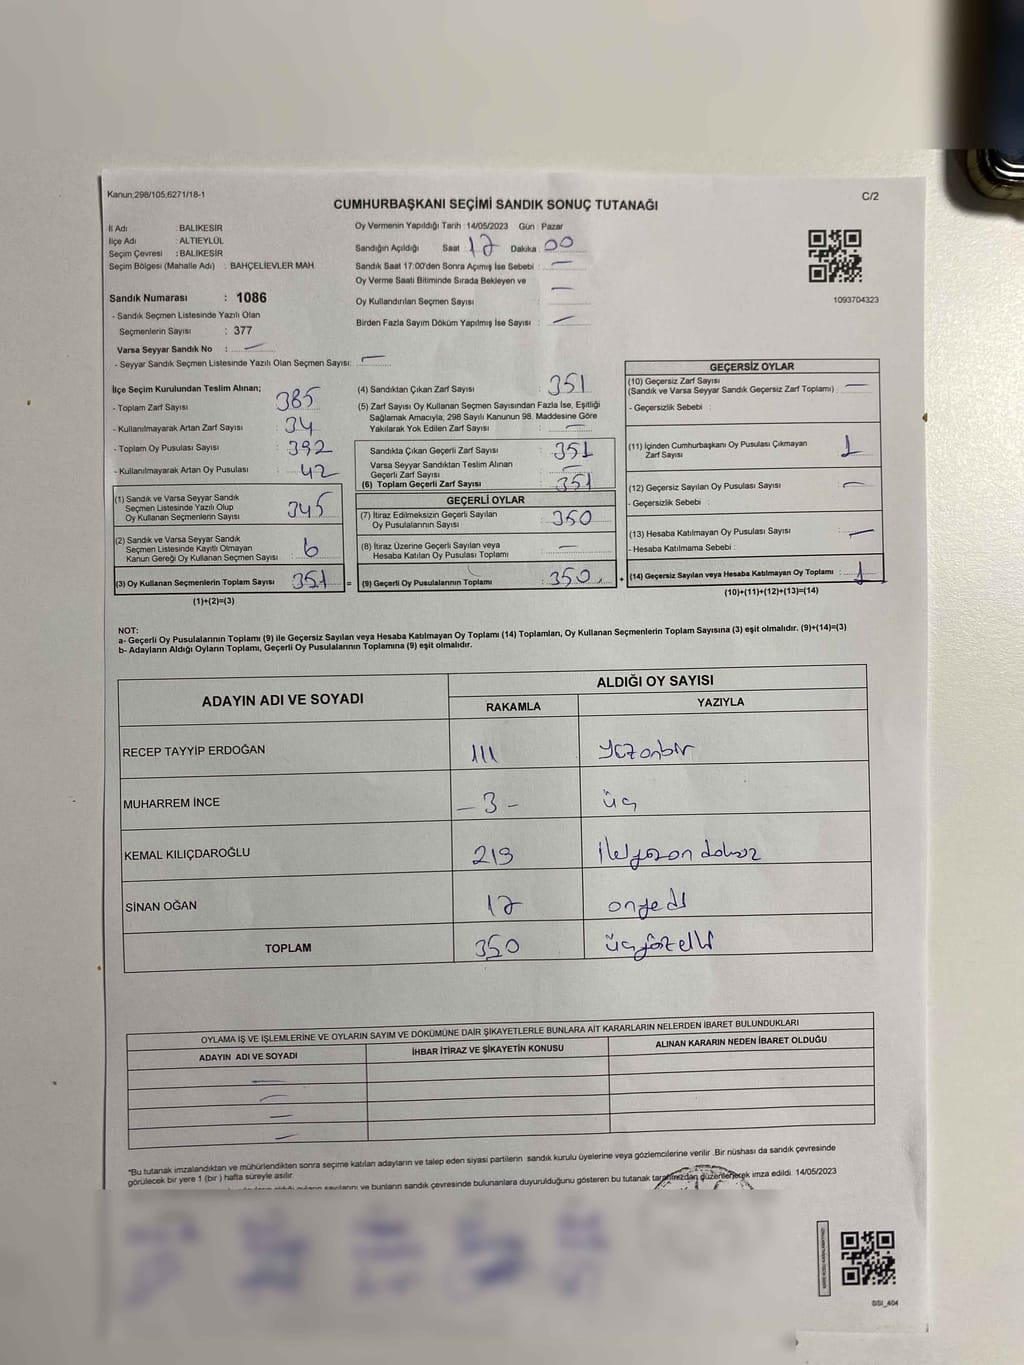 Kanun:298/105,6271/18-1
C/2
CUMHURBAŞKANI SEÇİMİ SANDIK SONUÇ TUTANAĞI
İl Adı : BALIKESİR
İlçe Adı : ALTIEYLÜL
Seçim Çevresi : BALIKESİR
Seçim Bölgesi (Mahalle Adı) : BAHÇELİEVLER MAH.
Sandık Numarası : 1086
- Sandık Seçmen Listesinde Yazılı Olan
Seçmenlerin Sayısı : 377
Varsa Seyyar Sandık No : —
- Seyyar Sandık Seçmen Listesinde Yazılı Olan Seçmen Sayısı: —
Oy Vermenin Yapıldığı Tarih : 14/05/2023 Gün : Pazar
Sandığın Açıldığı Saat : 17 Dakika : 00
Sandık Saat 17:00'den Sonra Açımış İse Sebebi : —
Oy Verme Saati Bitiminde Sırada Bekleyen ve
Oy Kullandırılan Seçmen Sayısı : —
Birden Fazla Sayım Döküm Yapılmış İse Sayısı : —
1093704323
İlçe Seçim Kurulundan Teslim Alınan;
- Toplam Zarf Sayısı : 385
- Kullanılmayarak Artan Zarf Sayısı : 34
- Toplam Oy Pusulası Sayısı : 392
- Kullanılmayarak Artan Oy Pusulası : 42
(1) Sandık ve Varsa Seyyar Sandık
Seçmen Listesinde Yazılı Olup
Oy Kullanan Seçmenlerin Sayısı : 345
(2) Sandık ve Varsa Seyyar Sandık
Seçmen Listesinde Kayıtlı Olmayan
Kanun Gereği Oy Kullanan Seçmen Sayısı : 6
(3) Oy Kullanan Seçmenlerin Toplam Sayısı : 351 =
(1)+(2)=(3)
(4) Sandıktan Çıkan Zarf Sayısı : 351
(5) Zarf Sayısı Oy Kullanan Seçmen Sayısından Fazla İse, Eşitliği
Sağlamak Amacıyla, 298 Sayılı Kanunun 98. Maddesine Göre
Yakılarak Yok Edilen Zarf Sayısı : —
Sandıkta Çıkan Geçerli Zarf Sayısı : 351
Varsa Seyyar Sandıktan Teslim Alınan
Geçerli Zarf Sayısı : —
(6) Toplam Geçerli Zarf Sayısı : 351
GEÇERLİ OYLAR
(7) İtiraz Edilmeksizin Geçerli Sayılan
Oy Pusulalarının Sayısı : 350
(8) İtiraz Üzerine Geçerli Sayılan veya
Hesaba Katılan Oy Pusulası Toplamı : —
(9) Geçerli Oy Pusulalarının Toplamı : 350 +
GEÇERSİZ OYLAR
(10) Geçersiz Zarf Sayısı
(Sandık ve Varsa Seyyar Sandık Geçersiz Zarf Toplamı) : —
- Geçersizlik Sebebi :
(11) İçinden Cumhurbaşkanı Oy Pusulası Çıkmayan
Zarf Sayısı : 1
(12) Geçersiz Sayılan Oy Pusulası Sayısı : —
- Geçersizlik Sebebi :
(13) Hesaba Katılmayan Oy Pusulası Sayısı : —
- Hesaba Katılmama Sebebi :
(14) Geçersiz Sayılan veya Hesaba Katılmayan Oy Toplamı : 1
(10)+(11)+(12)+(13)=(14)
NOT:
a- Geçerli Oy Pusulalarının Toplamı (9) ile Geçersiz Sayılan veya Hesaba Katılmayan Oy Toplamı (14) Toplamları, Oy Kullanan Seçmenlerin Toplam Sayısına (3) eşit olmalıdır. (9)+(14)=(3)
b- Adayların Aldığı Oyların Toplamı, Geçerli Oy Pusulalarının Toplamına (9) eşit olmalıdır.
ADAYIN ADI VE SOYADI
ALDIĞI OY SAYISI
RAKAMLA YAZIYLA
RECEP TAYYİP ERDOĞAN 111 yüzonbir
MUHARREM İNCE - 3 - üç
KEMAL KILIÇDAROĞLU 219 ikiyüzondokuz
SİNAN OĞAN 17 onyedi
TOPLAM 350 üçyüzelli
OYLAMA İŞ VE İŞLEMLERİNE VE OYLARIN SAYIM VE DÖKÜMÜNE DAİR ŞİKAYETLERLE BUNLARA AİT KARARLARIN NELERDEN İBARET BULUNDUKLARI
ADAYIN ADI VE SOYADI İHBAR İTİRAZ VE ŞİKAYETİN KONUSU ALINAN KARARIN NEDEN İBARET OLDUĞU
—
—
—
—
*Bu tutanak imzalandıktan ve mühürlendikten sonra seçime katılan adayların ve talep eden siyasi partilerin sandık kurulu üyelerine veya gözlemcilerine verilir .Bir nüshası da sandık çevresinde
görülecek bir yere 1 (bir ) hafta süreyle asılır.
sayılarını ve bunların sandık çevresinde bulunanlara duyurulduğunu gösteren bu tutanak tarafımızdan düzenlenerek imza edildi. 14/05/2023
SSI_404